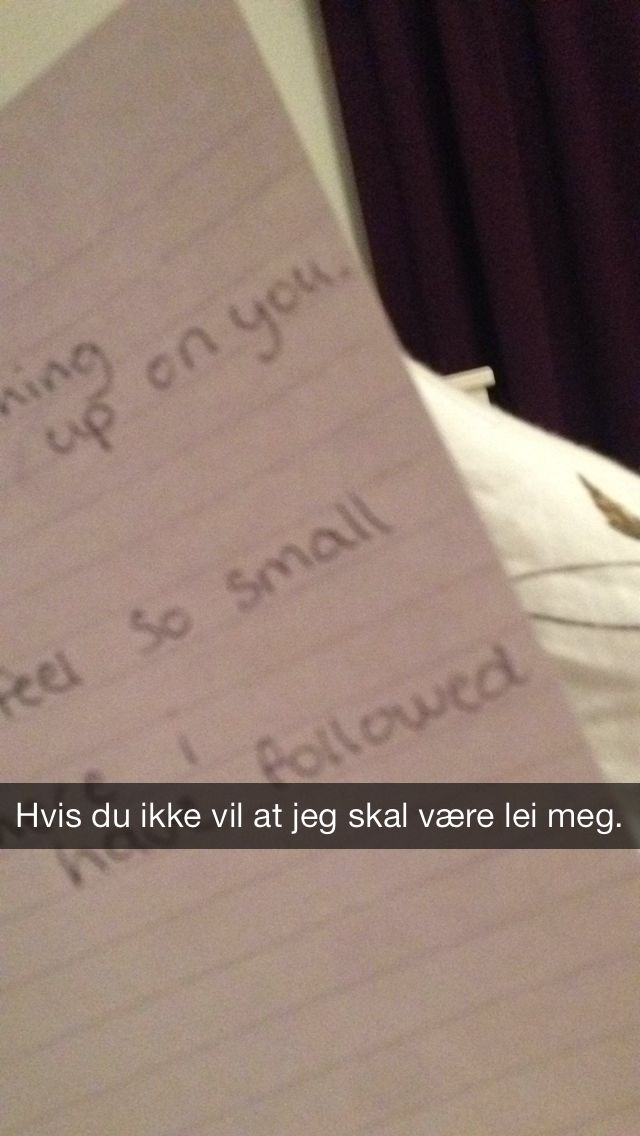 up on you.
feel so small
followed
Hvis du ikke vil at jeg skal være lei meg.
have